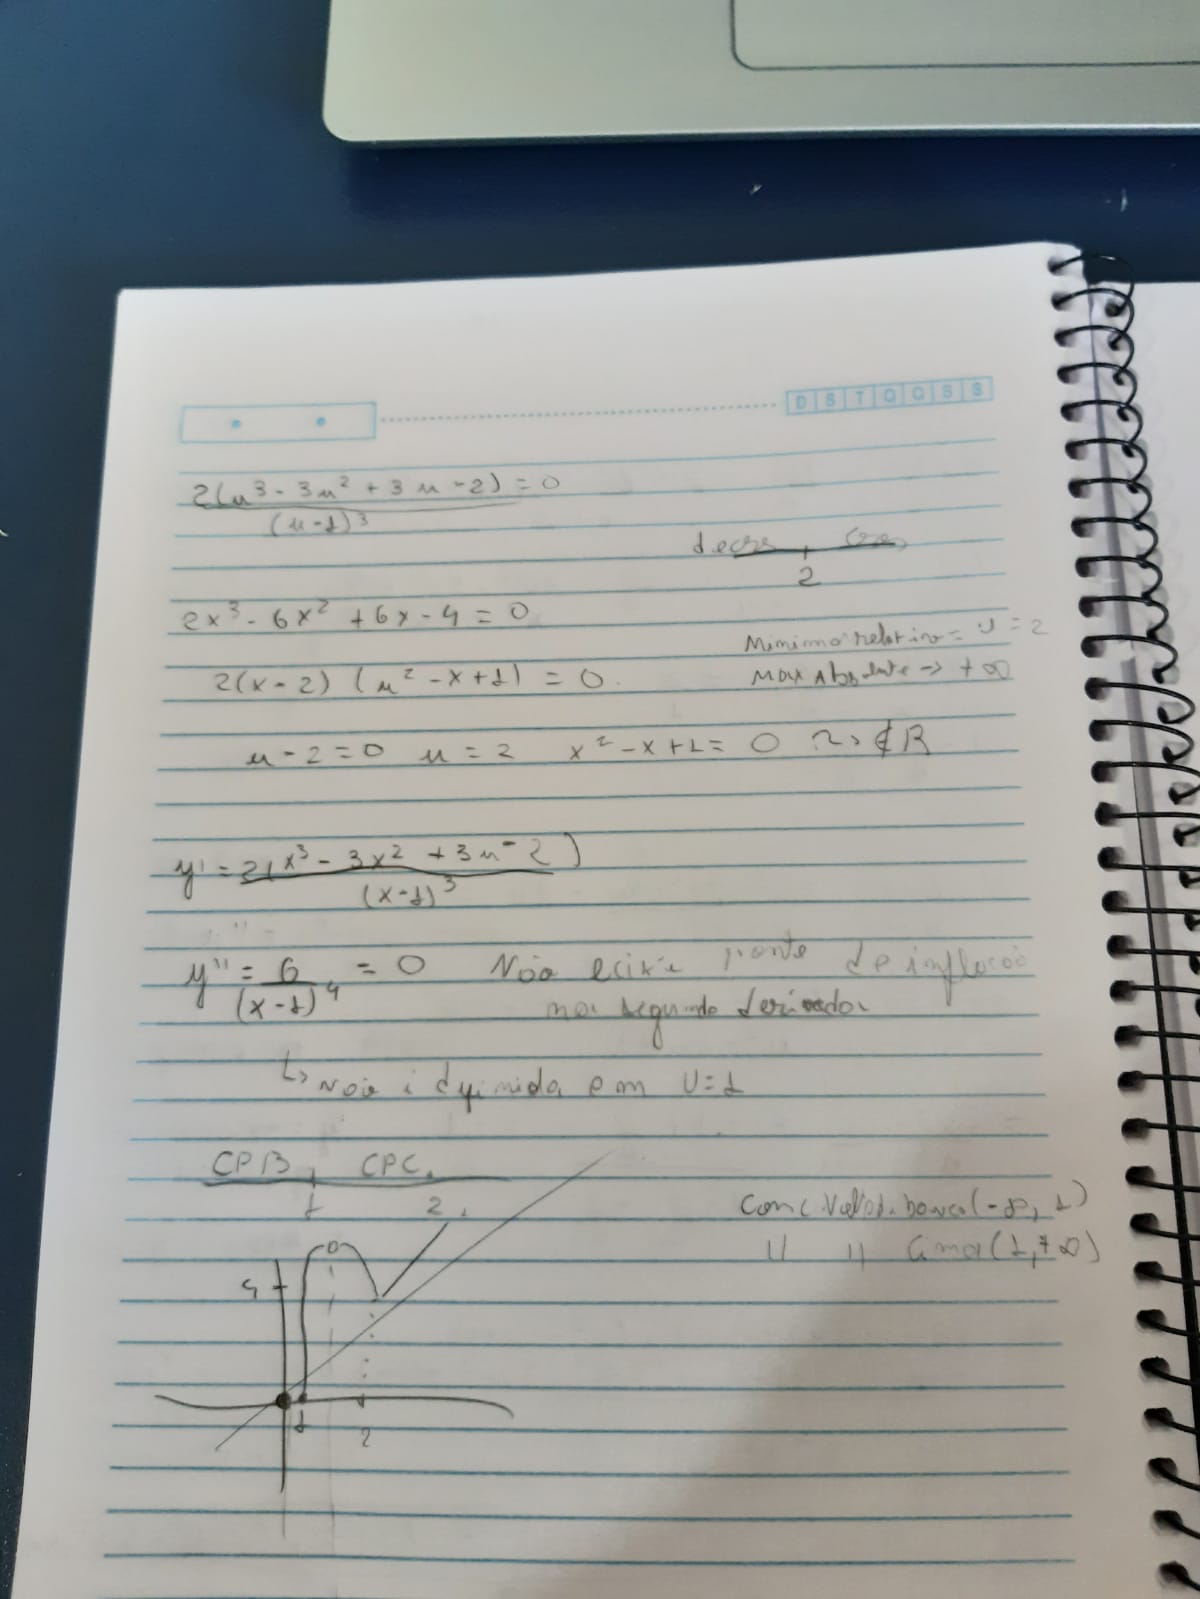 D S T Q Q S S
2(x³ - 3x² + 3x - 2) = 0
(x-1)³
decre cre
2
2x³ - 6x² + 6x - 4 = 0
Minimo relativo =
= 2
2(x-2) (x² - x + 1) = 0
Max Absoluto -> +∞
x - 2 = 0 x = 2 x² - x + 1 = 0 ~> ∉ R
y' = 2(x³ - 3x² + 3x - 2)
(x-1)³
y'' = 6 = 0 Não existe ponto de inflexão
(x-1)⁴ na segunda derivada
↳ Não é definida em = 1
CPB CPC
1 2
Conc baixo (-∞, 1)
" " Cima (1, +∞)
4
1
2